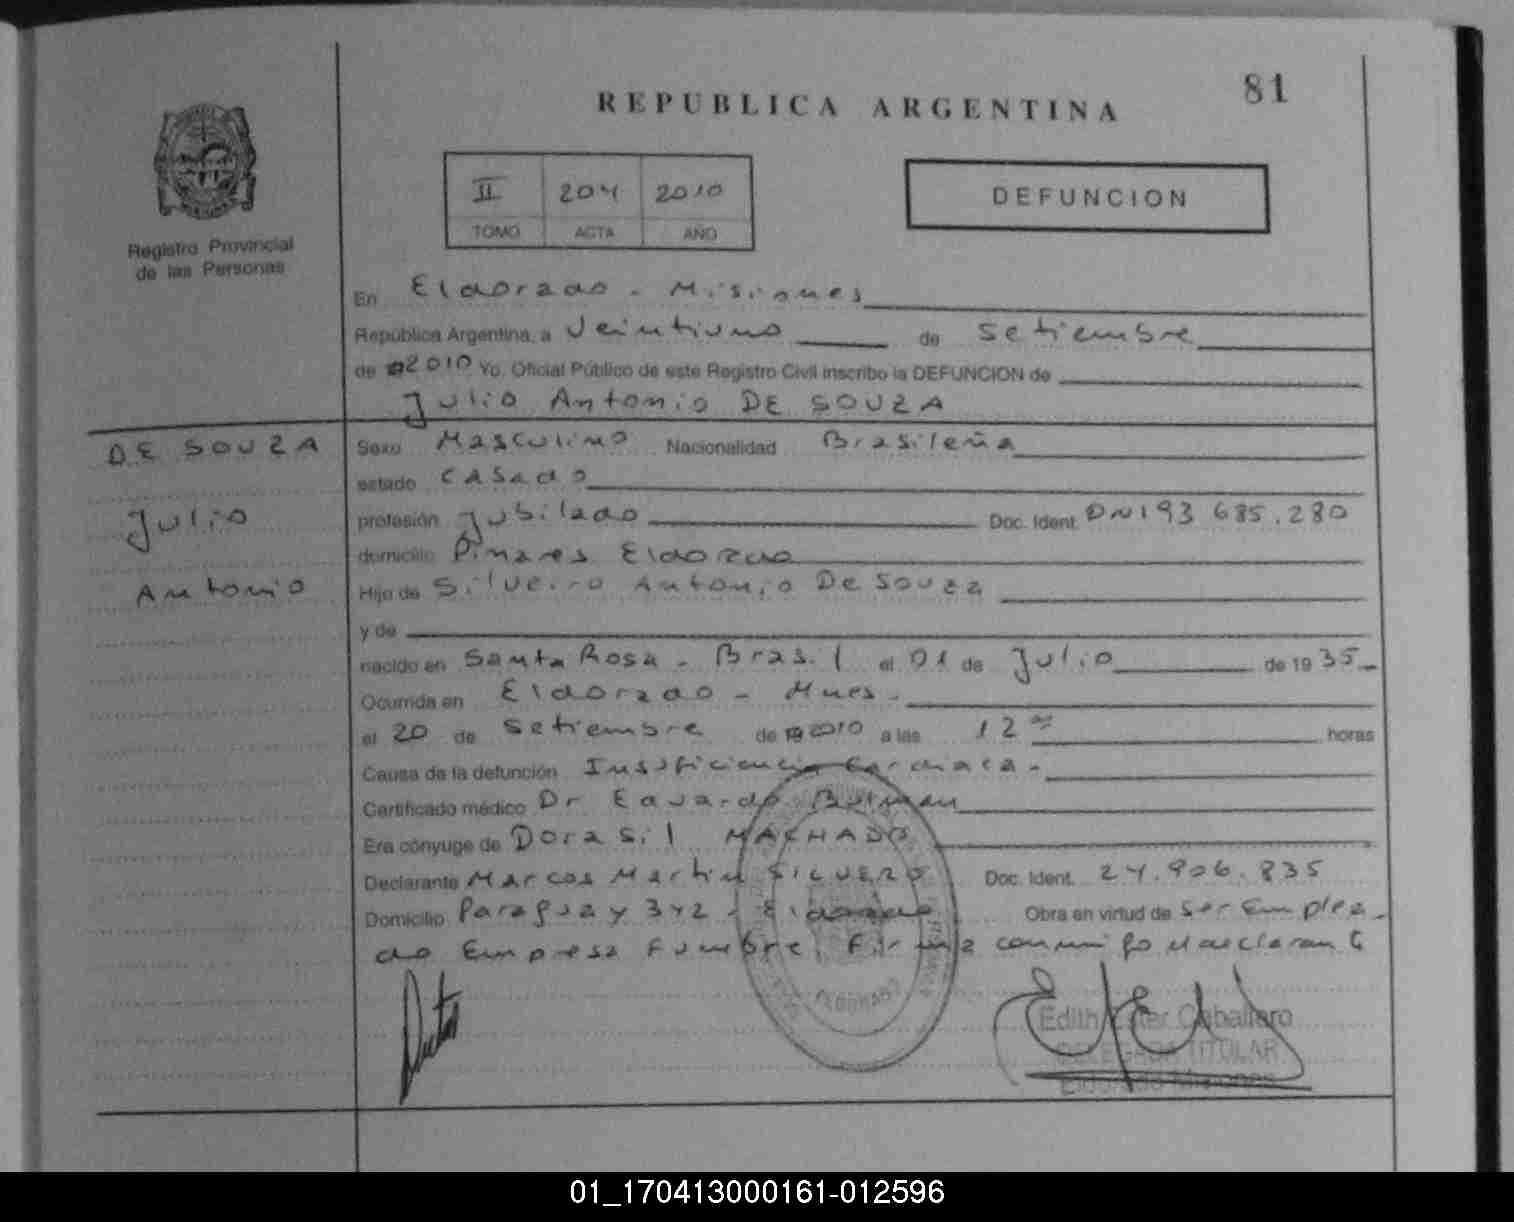 81
REPUBLICA ARGENTINA
II 204 2010
TOMO ACTA AÑO
DEFUNCION
Registro Provincial
de las Personas
En Eldorado - Misiones
República Argentina, a Veintiuno de Setiembre
de 2010 Yo, Oficial Público de este Registro Civil inscribo la DEFUNCION de
Julio Antonio DE SOUZA
DE SOUZA
Julio
Antonio
Sexo Masculino Nacionalidad Brasileña
estado Casado
profesión Jubilado Doc. Ident. DNI 93 685.280
domicilio Pinares Eldorado
Hijo de Silveiro Antonio De Souza
y de
nacido en Santa Rosa - Brasil el 01 de Julio de 1935
Ocurrida en Eldorado - Mnes.
el 20 de Setiembre de 2010 a las 12 horas
Causa de la defunción Insuficiencia Cardiaca -
Certificado médico Dr Eduardo Butman
Era cónyuge de Dorasil MACHADO
Declarante Marcos Martin SILVERO Doc. Ident. 24.906.835
Domicilio Paraguay 342 - Eldorado Obra en virtud de Ser Emplea-
do Empresa Funebre. Firma conmigo el declarante
ELDORADO
Edith Ester Caballero
DELEGADA TITULAR
Eldorado Misiones
01_170413000161-012596